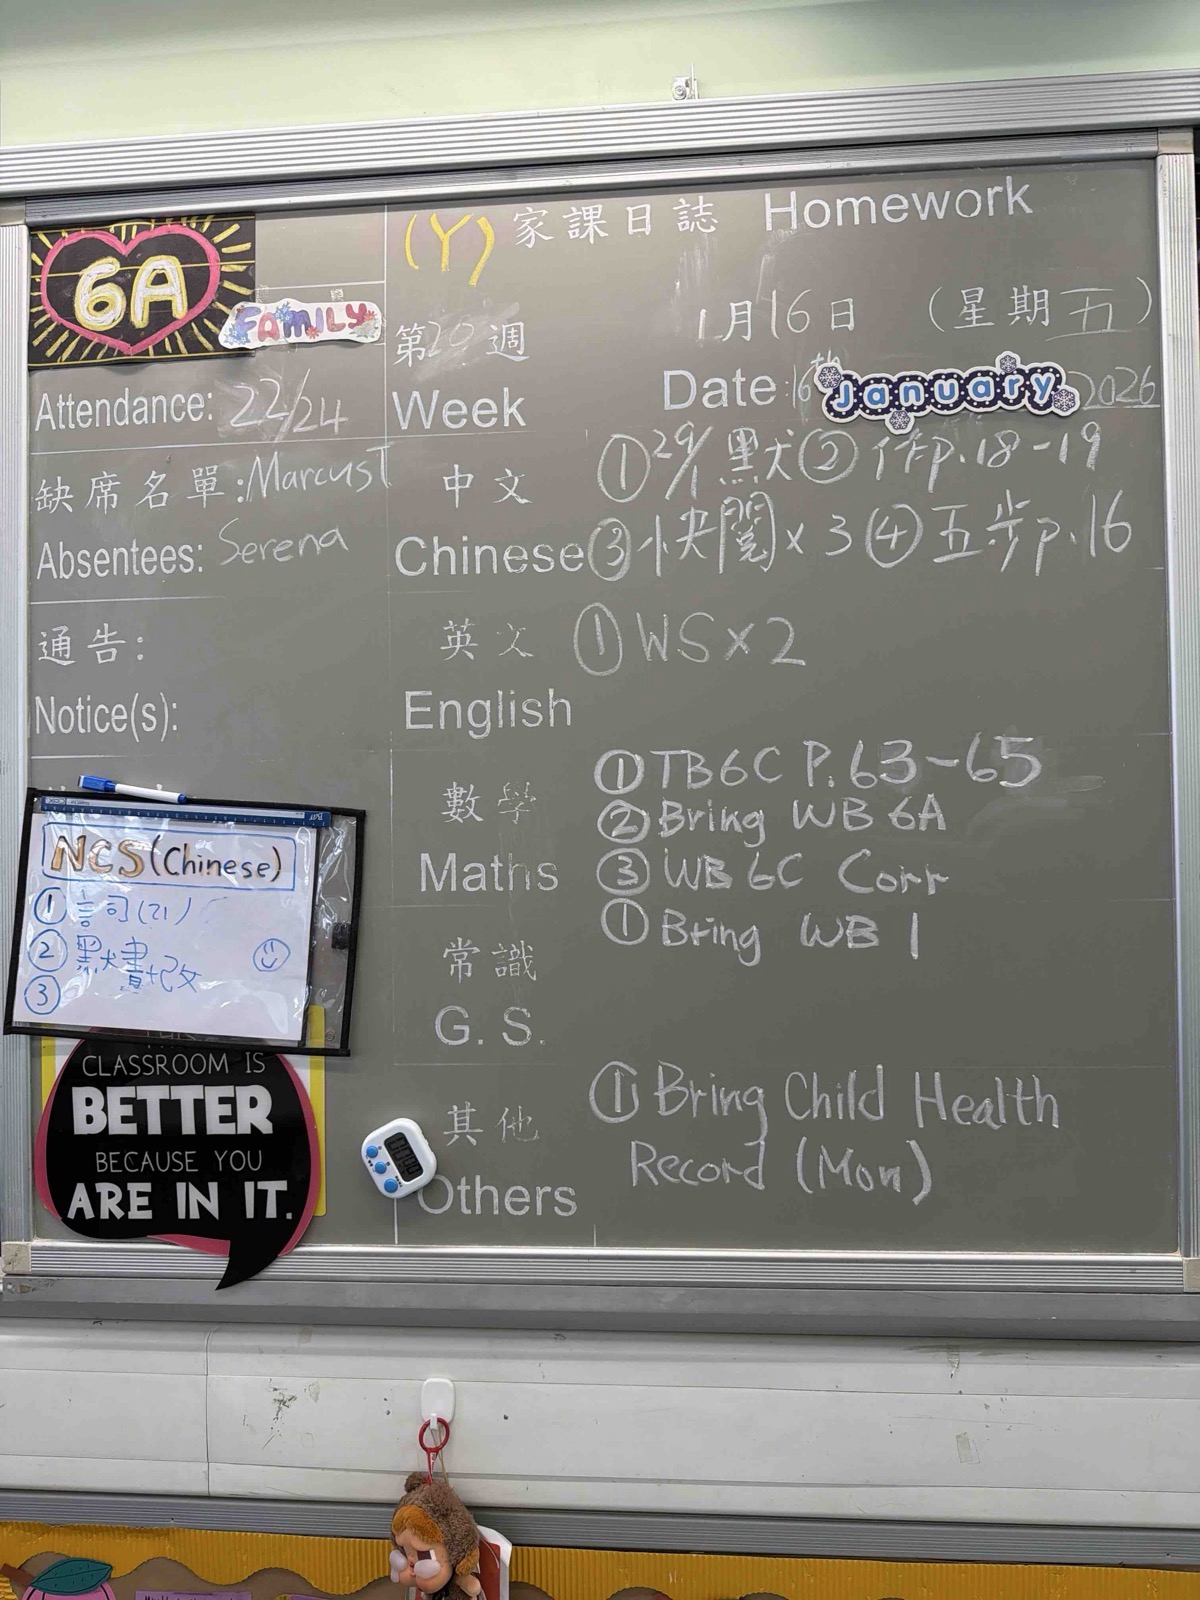 6A
FAMILY
(Y) 家課日誌 Homework
第20週
1月16日 (星期五)
Week
Date: 16th January 2026
Attendance: 22/24
缺席名單: Marcus T
Absentees: Serena
通告:
Notice(s):
中文
Chinese
① 29/1 默 ② 作p.18-19
③ 快閱 x 3 ④ 五步p.16
英文
English
① WS x 2
數學
Maths
① TB6C P.63-65
② Bring WB 6A
③ WB 6C Corr
常識
G. S.
① Bring WB 1
其他
Others
① Bring Child Health
Record (Mon)
NCS (Chinese)
① 詞(21)
② 默書改
③
CLASSROOM IS
BETTER
BECAUSE YOU
ARE IN IT.